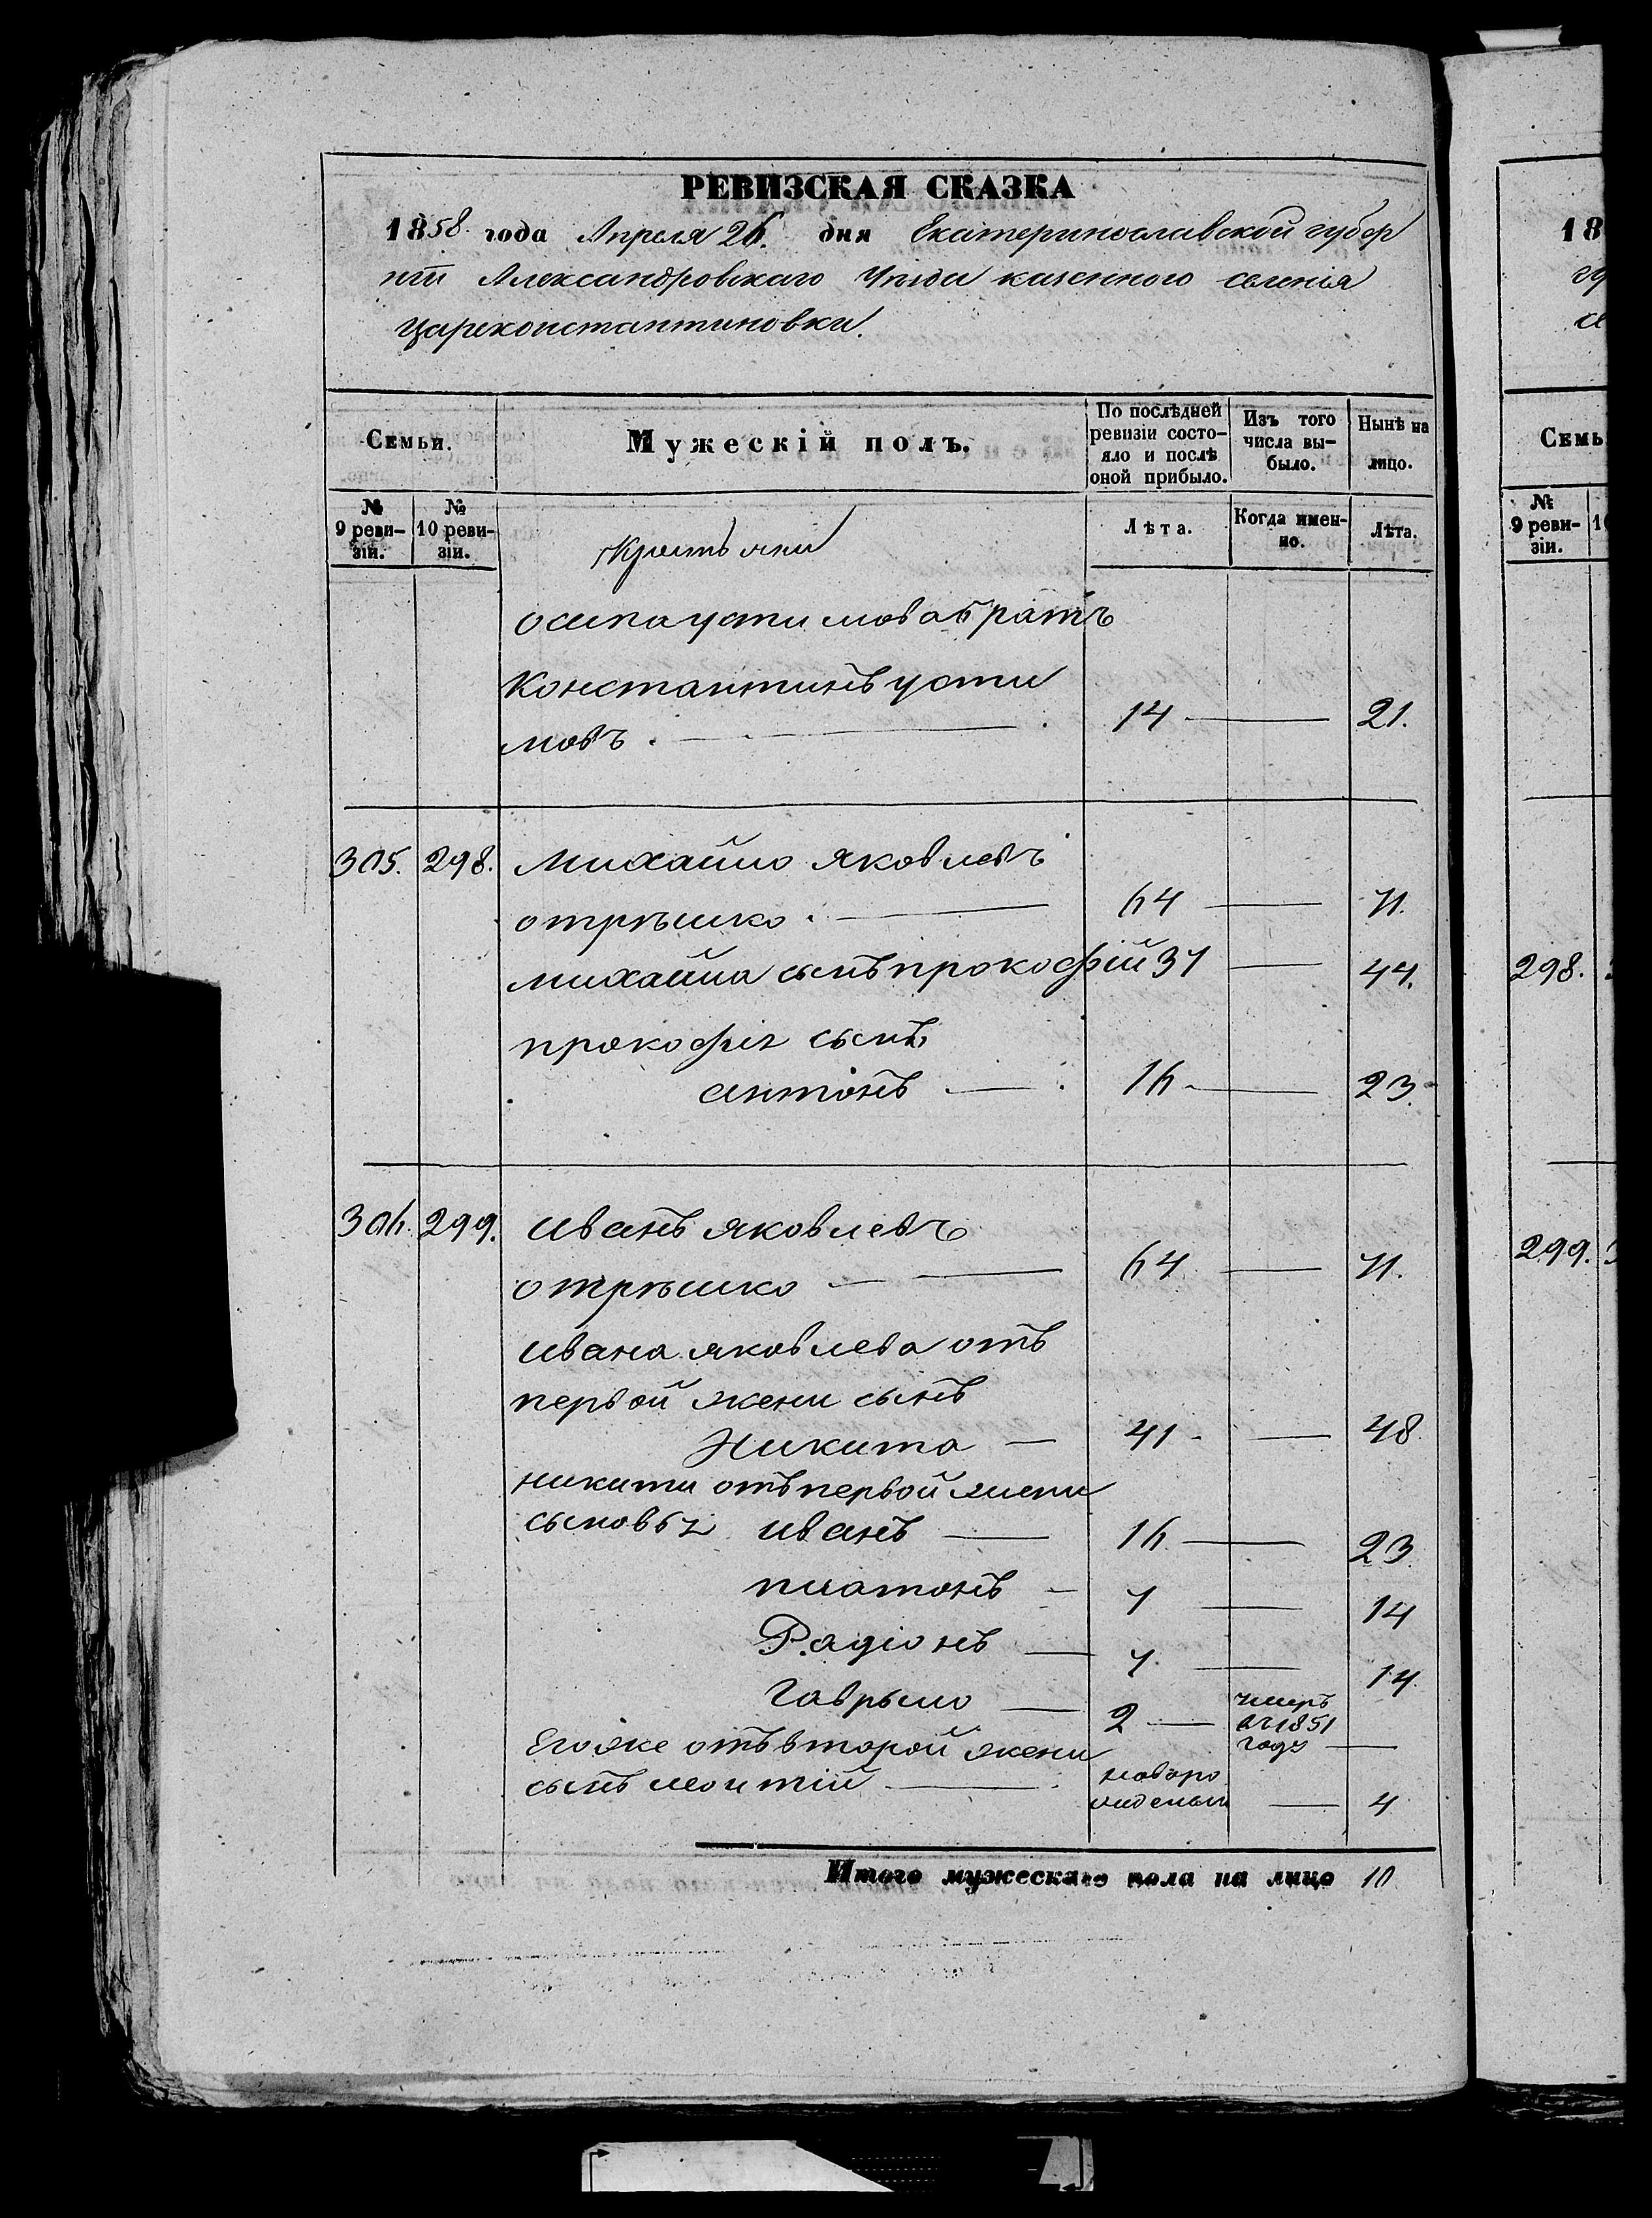 РЕВИЗСКАЯ СКАЗКА
1858 года Апреля 26. дня Екатеринославской губер
нiи Александровскаго Уѣзда казенного селенiя
Цареконстантиновки.
Семьи.
Мужескій полъ.
По послѣдней ревизіи состо-
яло и послѣ оной прибыло.
Изъ того числа вы-
было.
Нынѣ на лицо.
№ 9 реви-
зіи.
№ 10 реви-
зіи.
Крестьяни
Лѣта.
Когда имен-
но.
Лѣта.
осипа устимова братъ
Константинъ усти
мовъ. 14 21.
305. 298. михайло яковлевъ
отрѣшко. 64 71.
михайла сынъ прокофій 37 44.
прокофiя сынъ
антонъ 16 23.
306. 299. иванъ яковлевъ
отрѣшко 64. 71.
ивана яковлева отъ
первой жени сынъ
Никита 41 48
никити отъ первой жени
сыновья иванъ 16. 23
платонъ 7 14
Радiонъ 7. 14.
гаврыло 2 умеръ
въ 1851
году
Егоже отъ второй жени
сынъ леонтій новоро
жденый 4
Итого мужескаго пола на лицо 10
18
Семь
№ 9 реви-
зіи.
298.
299.